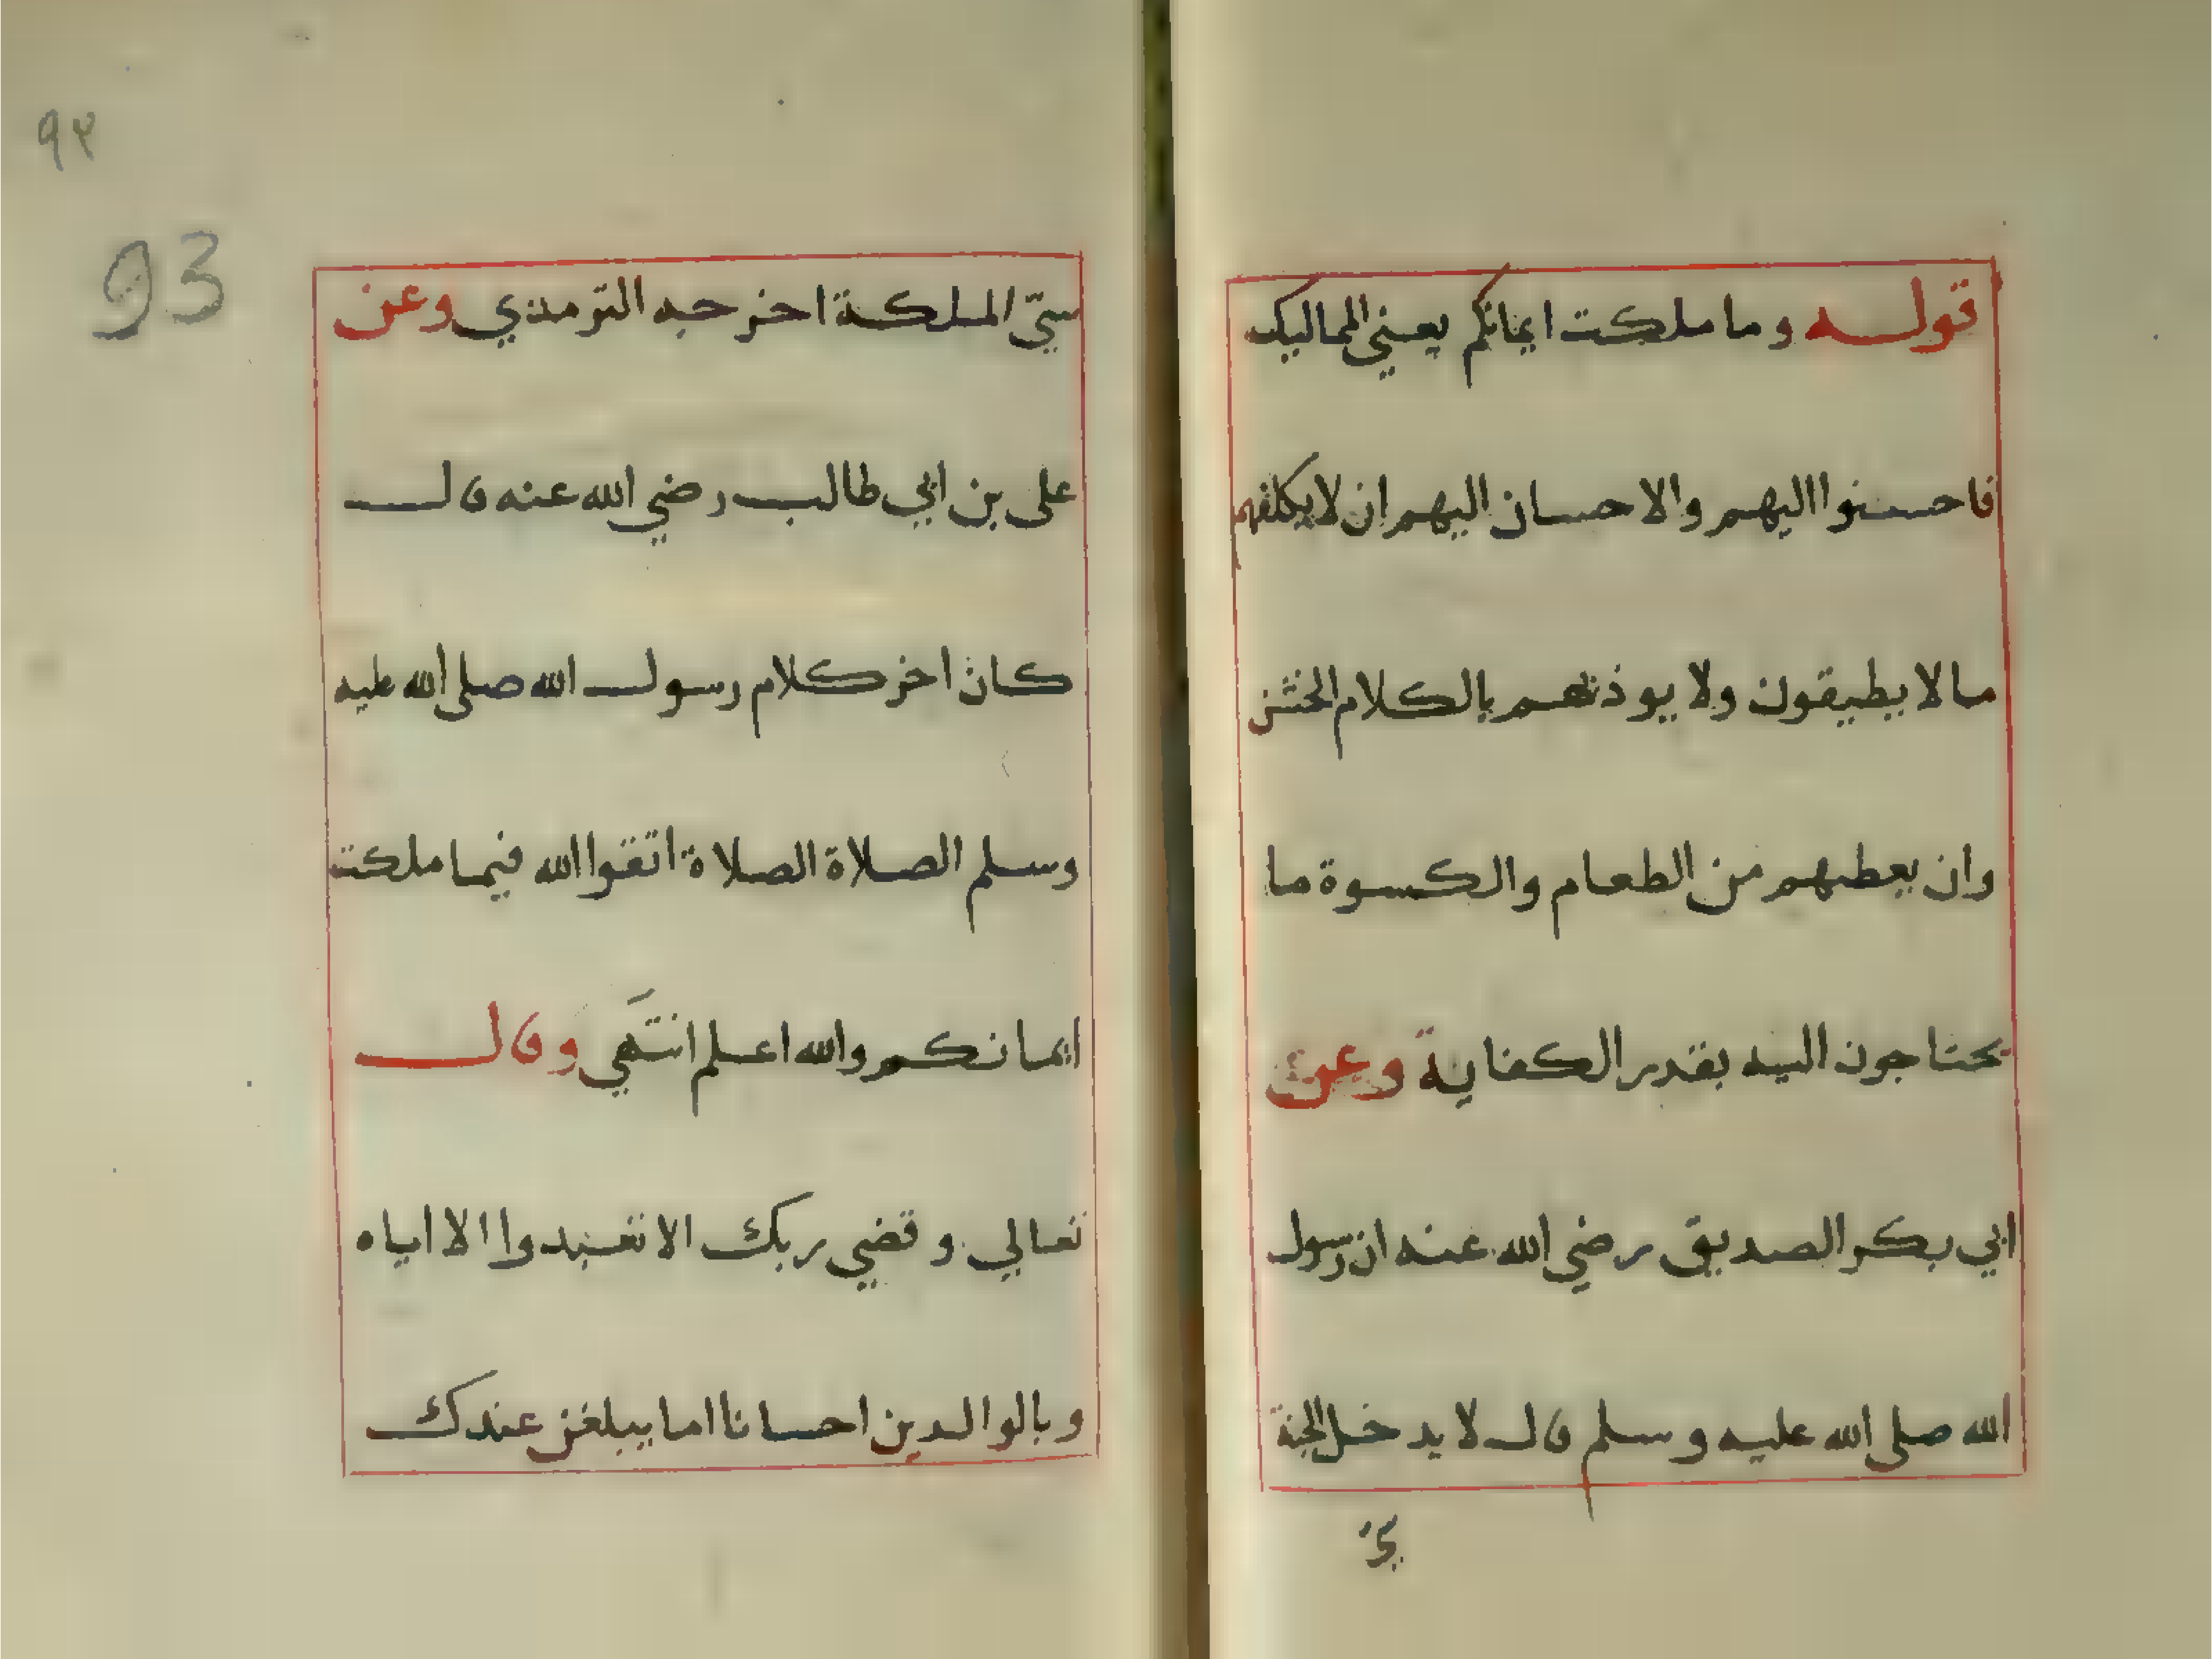 قوله وما ملكت ايمانكم يعني المماليك
فاحسنوا اليهم والاحسان اليهم ان لا يكلفهم
ما لا يطيقون ولا يوذنهم بالكلام الخشن
وان يعطيهم من الطعام والكسوة ما
يحتاجون اليه بقدر الكفاية وعن
ابي بكر الصديق رضي الله عنه ان رسول
الله صلى الله عليه وسلم قال لا يدخل الجنة
٩٣
93
سيّ الملكة اخرجه الترمذي وعن
على بن ابي طالب رضي الله عنه قال
كان اخر كلام رسول الله صلى الله عليه
وسلم الصلاة الصلاة اتقوا الله فيما ملكت
ايمانكم والله اعلم انتهي وقال
تعالي وقضي ربك الا تعبدوا الا اياه
وبالوالدين احسانا اما يبلغن عندك